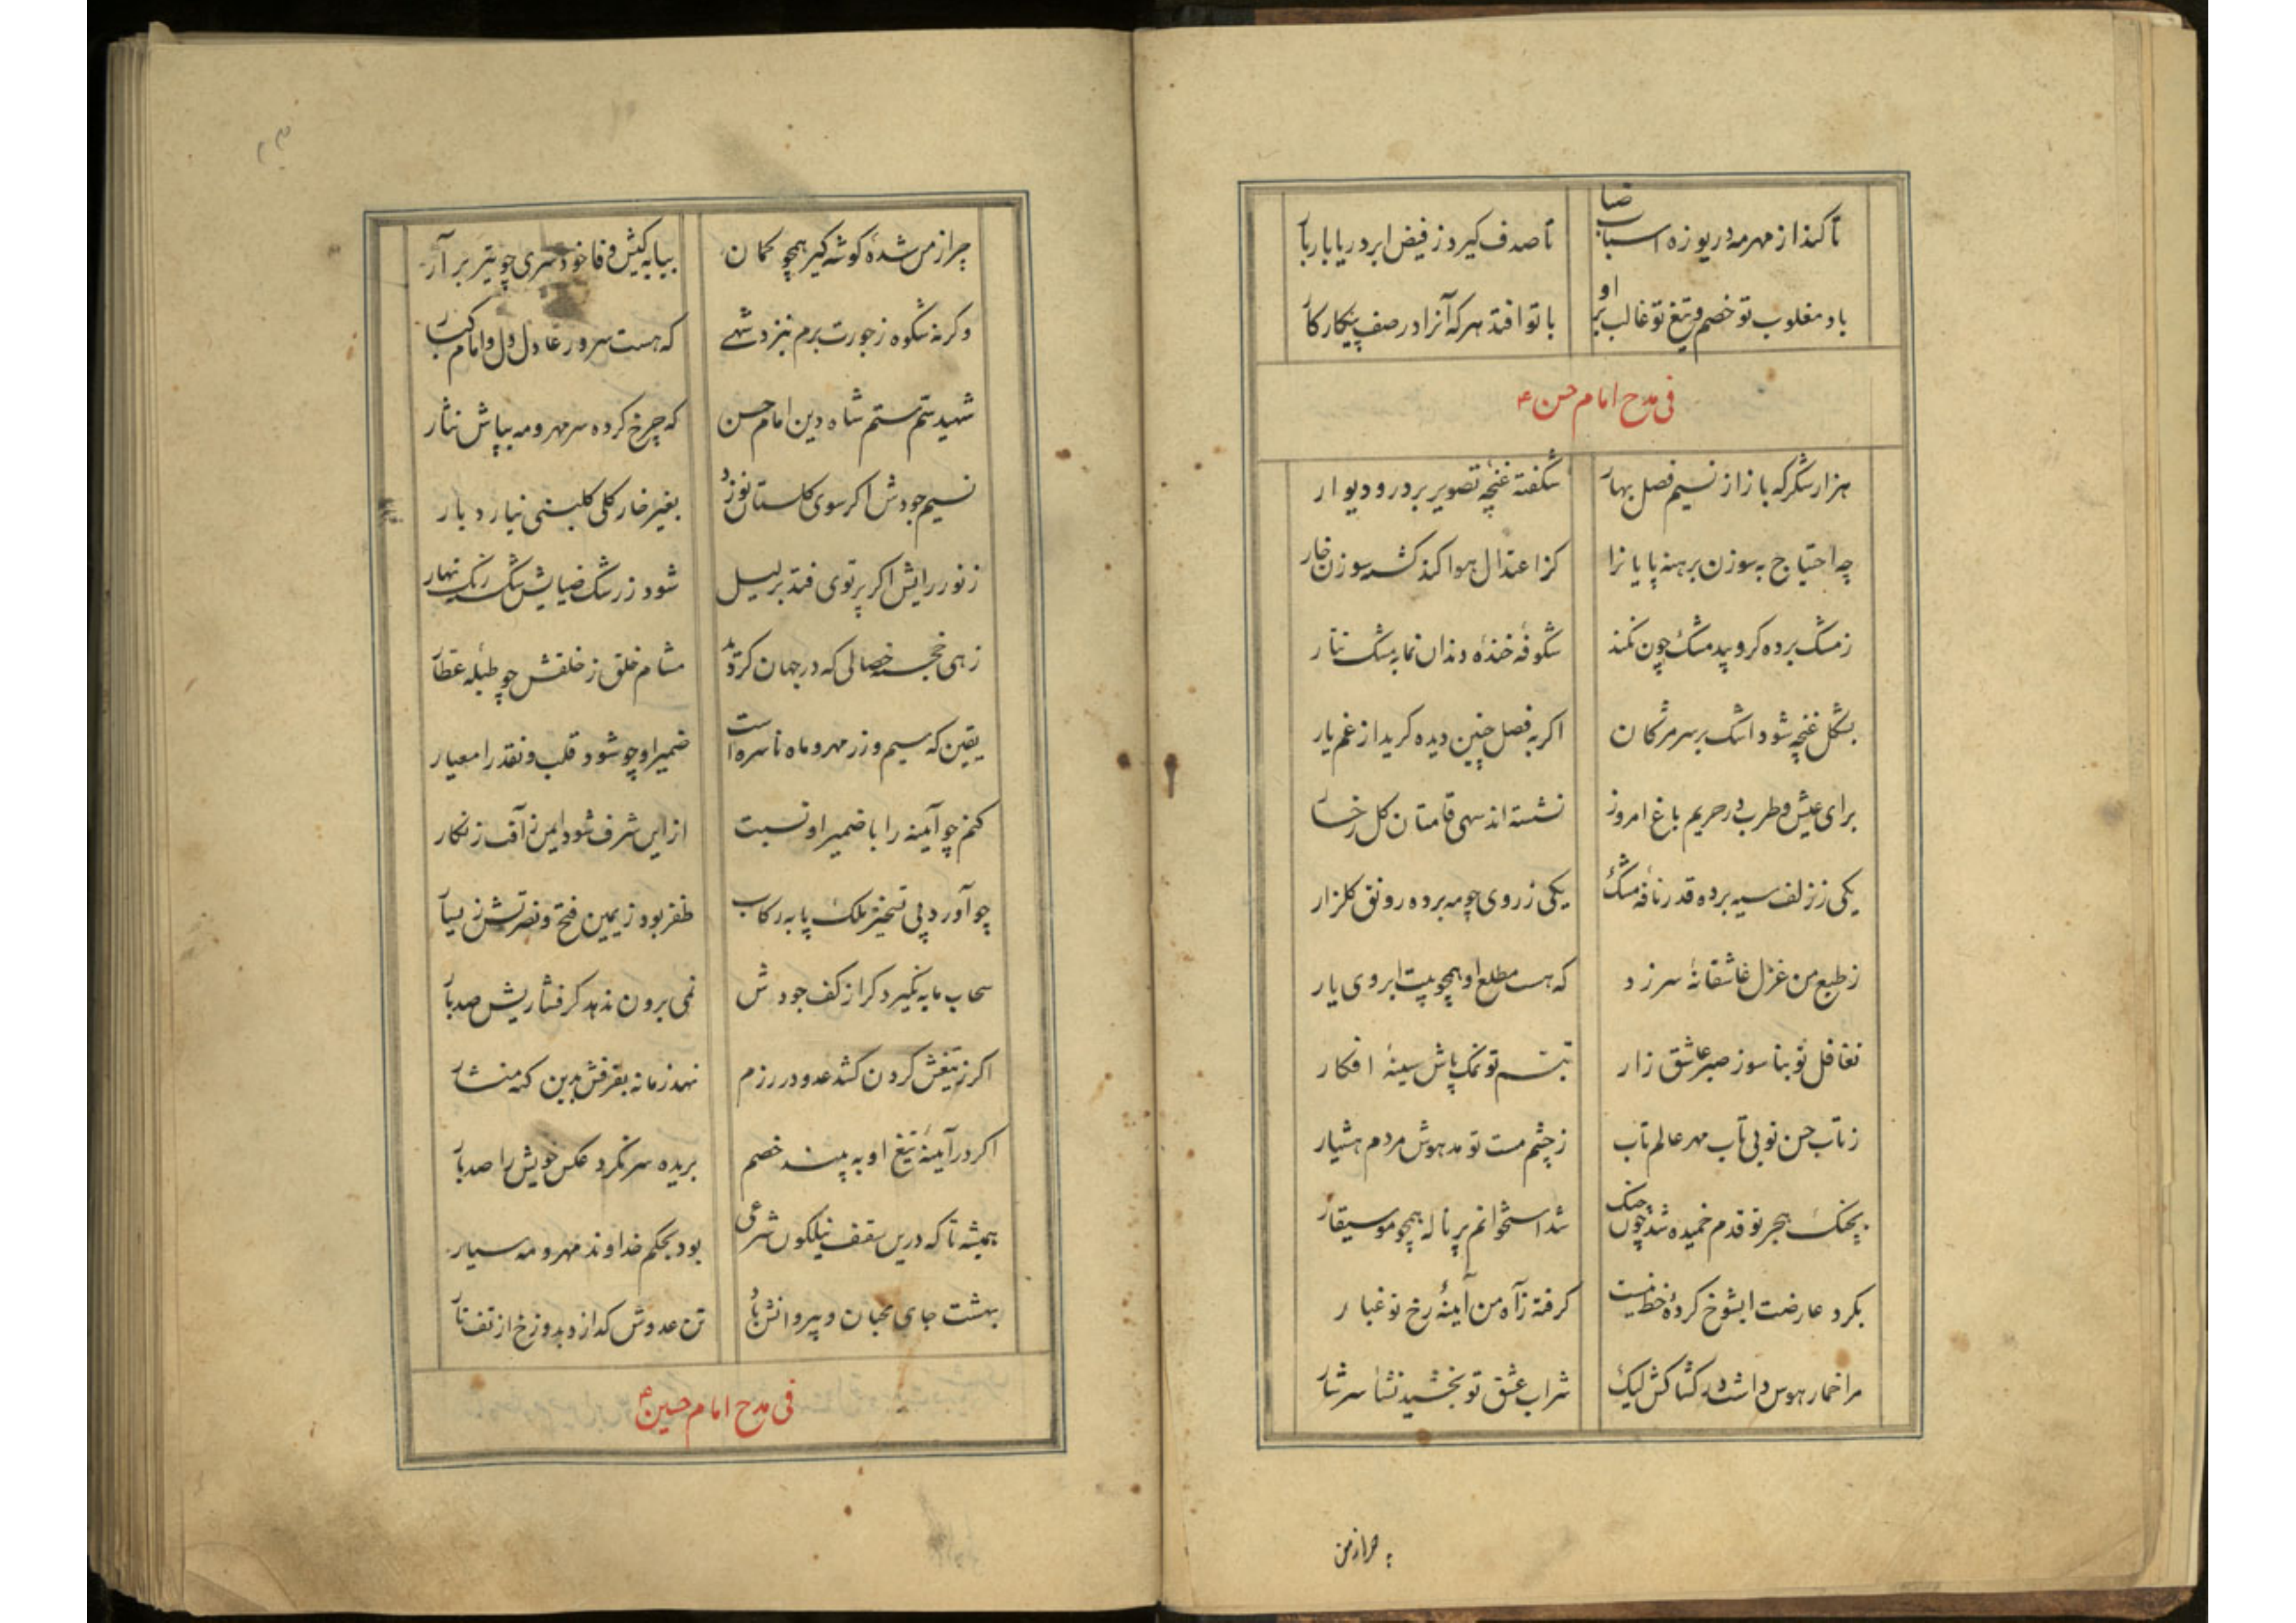 تا کند از مهر مه دریوزه اسباب ضیا تا صدف گیرد ز فیض ابر دریا بار بار
باد مغلوب تو خصم و تیغ تو غالب بر او با تو افتد هر که آنرا در صف پیکار کار
فی مدح امام حسن ع
هزار شکر که باز از نسیم فصل بهار شکفته غنچهٔ تصویر بر در و دیوار
چه احتیاج به سوزن برهنه پایانرا کز اعتدال هوا کند کشته سوزن خار
ز مشک برده کرو بیدمشک چون نکند شکوفه خندهٔ دندان نما به مشک تتار
بشکل غنچه شود اشک بر سر مژکان اکر به فصل چنین دیده کرید از غم یار
برای عیش و طرب در حریم باغ امروز نشسته اند سهی قامتان کل رخسار
یکی ز زلف سیه برده قدر نافهٔ مشک یکی ز روی چو مه برده رونق کلزار
ز طبع من غزل عاشقانهٔ سر زد که هست مطلع او همچو بیت ابروی یار
تغافل تو بنا سوز صبر عاشق زار تبسم تو نمک پاش سینهٔ افکار
ز تاب حسن تو بی تاب مهر عالم تاب ز چشم مست تو مدهوش مردم هشیار
بچنک هجر تو قدم خمیده شد چون چنک شد استخوانم پر ناله همچو موسیقار
بکرد عارضت ایشوخ کردهٔ خط نیست کرفته ز آه من آینهٔ رخ تو غبار
مرا خمار هوس داشت در کشاکش لیک شراب عشق تو بخشید نشأ سرشار
چرا ز من
چرا ز من شدهٔ کوشه کیر همچو کمان بیا به کیش وفا خود سری چو تیر بر آر
وکرنه شکوه ز جورت برم بنزد شهی که هست سرور عادل دل و امام کبار
شهید تیغ ستم شاه دین امام حسن که چرخ کرده سر مهر و مه بپاش نثار
نسیم جودش اکر سوی کلستان نوزد بغیر خار کلی کلبنی نیارد بار
ز نور رایش اکر پرتوی فتد بر لیل شود ز رشک ضیایش شکسته رنک نهار
زهی خجسته خصالی که در جهان کردید مشام خلق ز خلقش چو طبلهٔ عطار
یقین که سیم و زر مهر و ماه ناسره است ضمیر او چو شود قلب و نقد را معیار
کنم چو آینه را با ضمیر او نسبت از این شرف شود ایمن ز آفت زنکار
چو آورد پی تسخیر ملک پا به رکاب ظفر بود ز یمین فتح و نصرتش ز یسار
سحاب مایه نگیرد کر از کف جودش نمی برون ندهد کر فشاریش صد بار
اکر ز تیغش کردن کشد عدو در رزم نهد زمانه بفرقش بدین کنه منشار
اکر در آینهٔ تیغ او به بیند خصم بریده سر نکرد عکس خویش را صد بار
همیشه تا که درین سقف نیلکون شرعی بود بحکم خداوند مهر و مه سیار
بهشت جای محبان و پیروانش باد تن عدوش کدازد بدوزخ از تف نار
فی مدح امام حسین ع